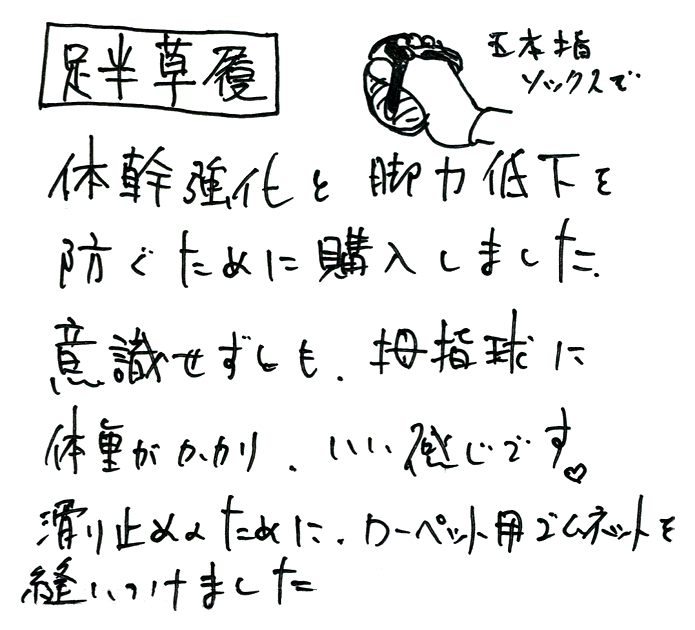 足半草履
五本指
ソックスで
体幹強化と脚力低下を
防ぐために購入しました.
意識せずしも、拇指球に
体重がかかり、いい感じです♡
滑り止めのために、カーペット用ゴムネットを
縫いつけました